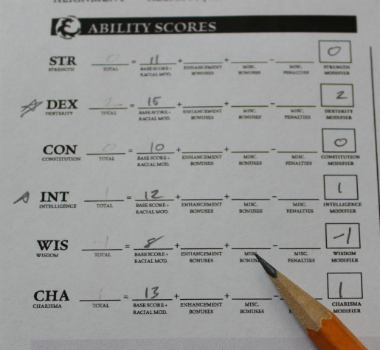 ABILITY SCORES
STR 0 = 11 + + - 0
STRENGTH TOTAL BASE SCORE + RACIAL MOD. ENHANCEMENT BONUSES MISC. BONUSES MISC. PENALTIES STRENGTH MODIFIER
DEX = 15 + + - 2
DEXTERITY TOTAL BASE SCORE + RACIAL MOD. ENHANCEMENT BONUSES MISC. BONUSES MISC. PENALTIES DEXTERITY MODIFIER
CON 0 = 10 + + - 0
CONSTITUTION TOTAL BASE SCORE + RACIAL MOD. ENHANCEMENT BONUSES MISC. BONUSES MISC. PENALTIES CONSTITUTION MODIFIER
INT = 12 + + - 1
INTELLIGENCE TOTAL BASE SCORE + RACIAL MOD. ENHANCEMENT BONUSES MISC. BONUSES MISC. PENALTIES INTELLIGENCE MODIFIER
WIS = 8 + + - -1
WISDOM TOTAL BASE SCORE + RACIAL MOD. ENHANCEMENT BONUSES MISC. BONUSES MISC. PENALTIES WISDOM MODIFIER
CHA = 13 + + - 1
CHARISMA TOTAL BASE SCORE + RACIAL MOD. ENHANCEMENT BONUSES MISC. BONUSES CHARISMA MODIFIER